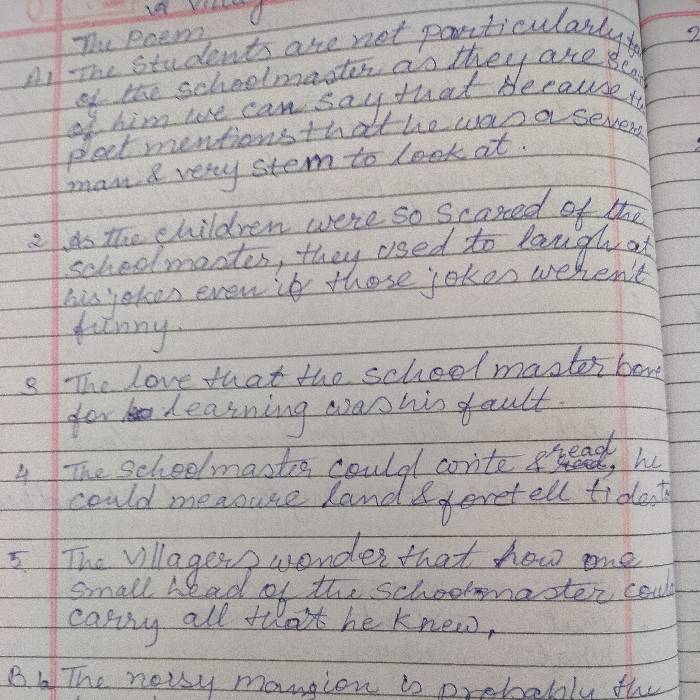 The Poem
A1 The Students are not particularly fo
of the schoolmaster as they are scar
of him we can say that because the
poet mentions that he was a severe
man & very stern to look at.
2 As the children were so scared of the
schoolmaster, they used to laugh at
his jokes even if those jokes weren't
funny.
3 The love that the schoolmaster bore
for learning was his fault.
4 The schoolmaster could write & read, he
could measure land & foretell tides
5. The villagers wonder that how one
small head of the schoolmaster could
carry all that he knew,
The noisy mansion is probably the